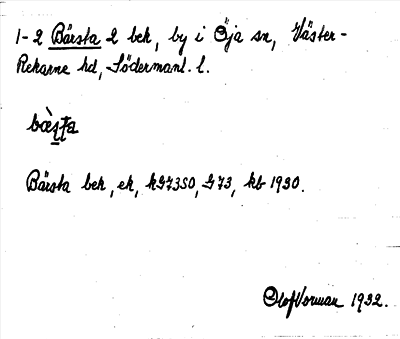 1-2 Bärsta 2 bek, by i Öja sn, Väster-
Rekarne hd, Södermanl. l.
bæ̀ʂʈa
Bärsta bek, ek, kG73SO, G73, kb 1930.
Olof Vorman 1932.